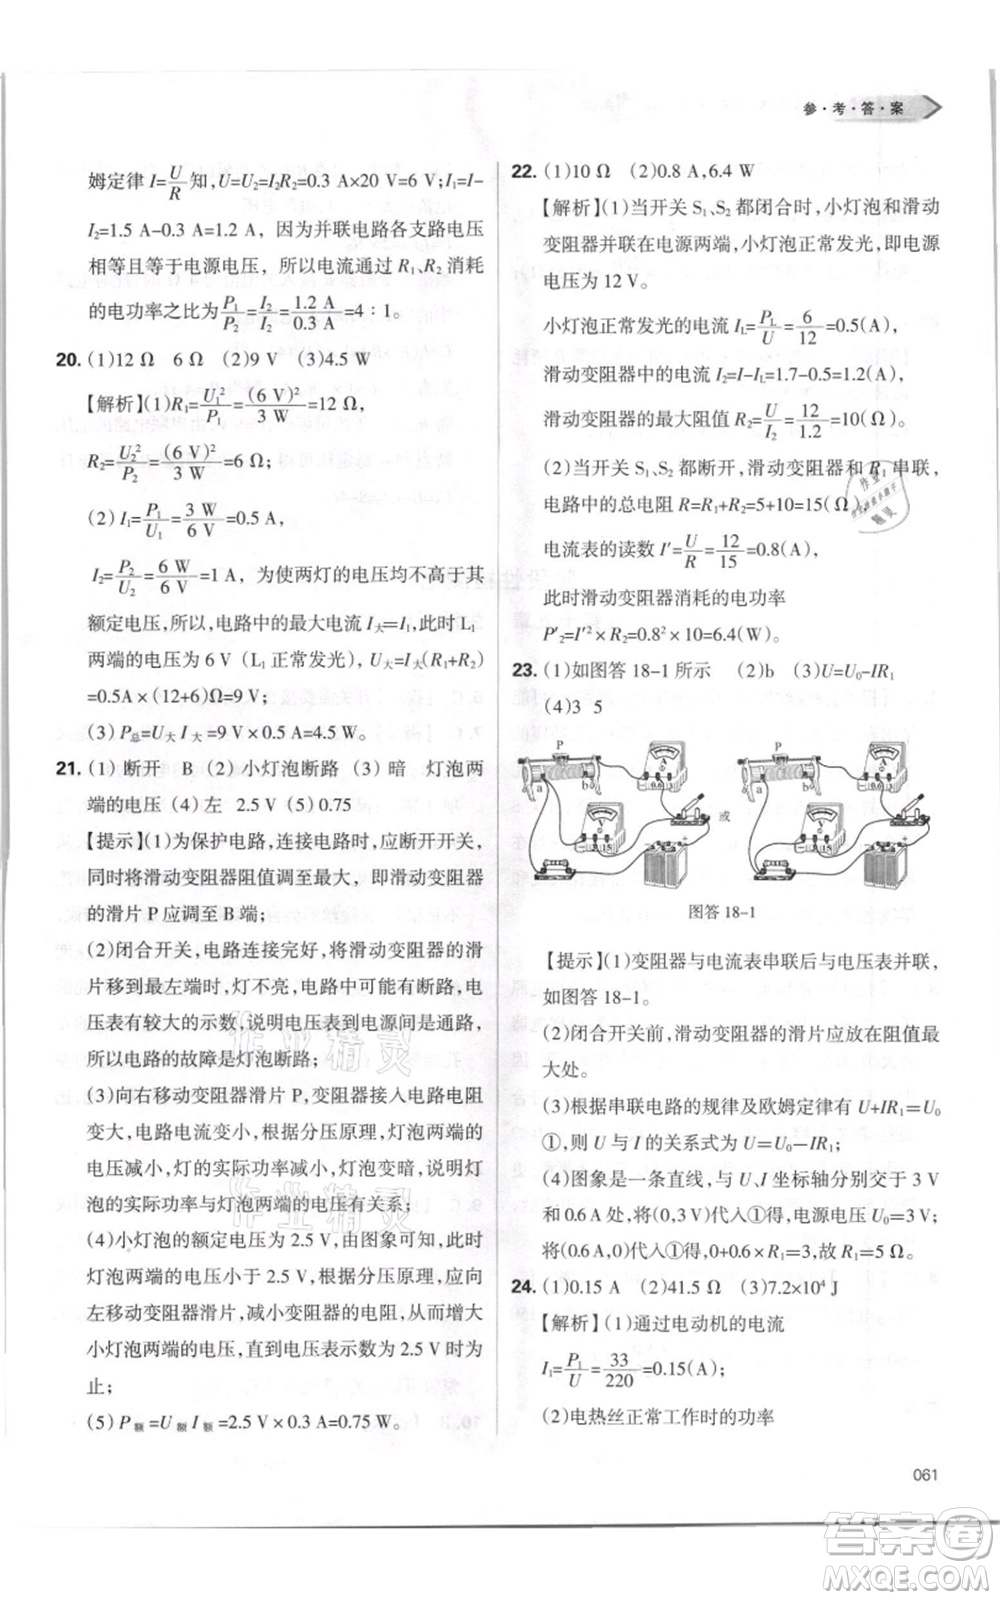 参·考·答·案
姆定律 I=U/R 知，U=U₂=I₂R₂=0.3 A×20 V=6 V；I₁=I-
I₂=1.5 A-0.3 A=1.2 A，因为并联电路各支路电压
相等且等于电源电压，所以电流通过 R₁、R₂ 消耗
的电功率之比为 P₁/P₂=I₁/I₂=1.2 A/0.3 A=4∶1。
20. (1)12 Ω 6 Ω (2)9 V (3)4.5 W
【解析】(1)R₁=U₁²/P₁=(6 V)²/3 W=12 Ω，
R₂=U₂²/P₂=(6 V)²/6 W=6 Ω；
(2) I₁=P₁/U₁=3 W/6 V=0.5 A，
I₂=P₂/U₂=6 W/6 V=1 A，为使两灯的电压均不高于
额定电压，所以，电路中的最大电流 I大=I₁，此时 L₁
两端的电压为 6 V（L₁ 正常发光），U大=I大(R₁+R₂)
=0.5A×(12+6)Ω=9 V；
(3) P总=U大 I大=9 V×0.5 A=4.5 W。
21. (1) 断开 B (2) 小灯泡断路 (3) 暗 灯泡两
端的电压 (4) 左 2.5 V (5) 0.75
【提示】(1)为保护电路，连接电路时，应断开开关，
同时将滑动变阻器阻值调至最大，即滑动变阻器
的滑片 P 应调至 B 端；
(2)闭合开关，电路连接完好，将滑动变阻器的滑
片移到最左端时，灯不亮，电路中可能有断路，电
压表有较大的示数，说明电压表到电源间是通路，
所以电路的故障是灯泡断路；
(3)向右移动变阻器滑片 P，变阻器接入电路电阻
变大，电路电流变小，根据分压原理，灯泡两端的
电压减小，灯泡的实际功率减小，灯泡变暗，说明灯
泡的实际功率与灯泡两端的电压有关系；
(4)小灯泡的额定电压为 2.5 V，由图象可知，此时
灯泡两端的电压小于 2.5 V，根据分压原理，应向
左移动变阻器滑片，减小变阻器的电阻，从而增大
小灯泡两端的电压，直到电压表示数为 2.5 V 时为
止；
(5) P额=U额 I额=2.5 V×0.3 A=0.75 W。
22. (1)10 Ω (2)0.8 A，6.4 W
【解析】(1)当开关 S₁、S₂ 都闭合时，小灯泡和滑动
变阻器并联在电源两端，小灯泡正常发光，即电源
电压为 12 V。
小灯泡正常发光的电流 I_L=P_L/U=6/12=0.5(A)
滑动变阻器中的电流 I₂=I-I_L=1.7-0.5=1.2(A)
滑动变阻器的最大阻值 R₂=U/I₂=12/1.2=10(Ω)
(2)当开关 S₁、S₂ 都断开，滑动变阻器和 R₁ 串联，
电路中的总电阻 R=R₁+R₂=5+10=15(Ω)
电流表的读数 I′=U/R=12/15=0.8(A)
此时滑动变阻器消耗的电功率
P′₂=I′²×R₂=0.8²×10=6.4(W)。
23. (1)如图答 18-1 所示 (2)b (3)U=U₀-IR₁
(4)3 5
P
a
b
或
P
a
b
图答 18-1
【提示】(1)变阻器与电流表串联后与电压表并联，
如图答 18-1。
(2)闭合开关前，滑动变阻器的滑片应放在阻值最
大处。
(3)根据串联电路的规律及欧姆定律有 U+IR₁=U₀
①，则 U 与 I 的关系式为 U=U₀-IR₁；
(4)图象是一条直线，与 U、I 坐标轴分别交于 3 V
和 0.6 A 处，将(0,3 V)代入①得，电源电压 U₀=3 V；
将(0.6 A,0)代入①得，0+0.6×R₁=3，故 R₁=5 Ω。
24. (1)0.15 A (2)41.5 Ω (3)7.2×10⁴ J
【解析】(1)通过电动机的电流
I₁=P₁/U=33/220=0.15(A)；
(2)电热丝正常工作时的功率
061
作业精灵
作业精灵
答案卷
MXQE.COM